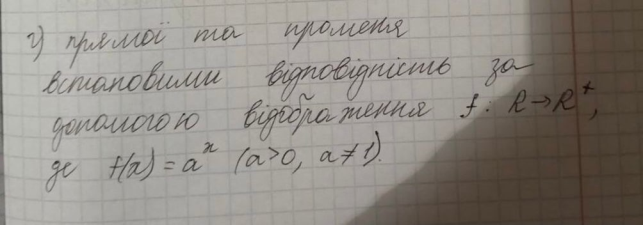 г) прямої та променя
встановими відповідність за
допомогою відображення f: R→R⁺,
де f(x) = aˣ (a>0, a≠1).